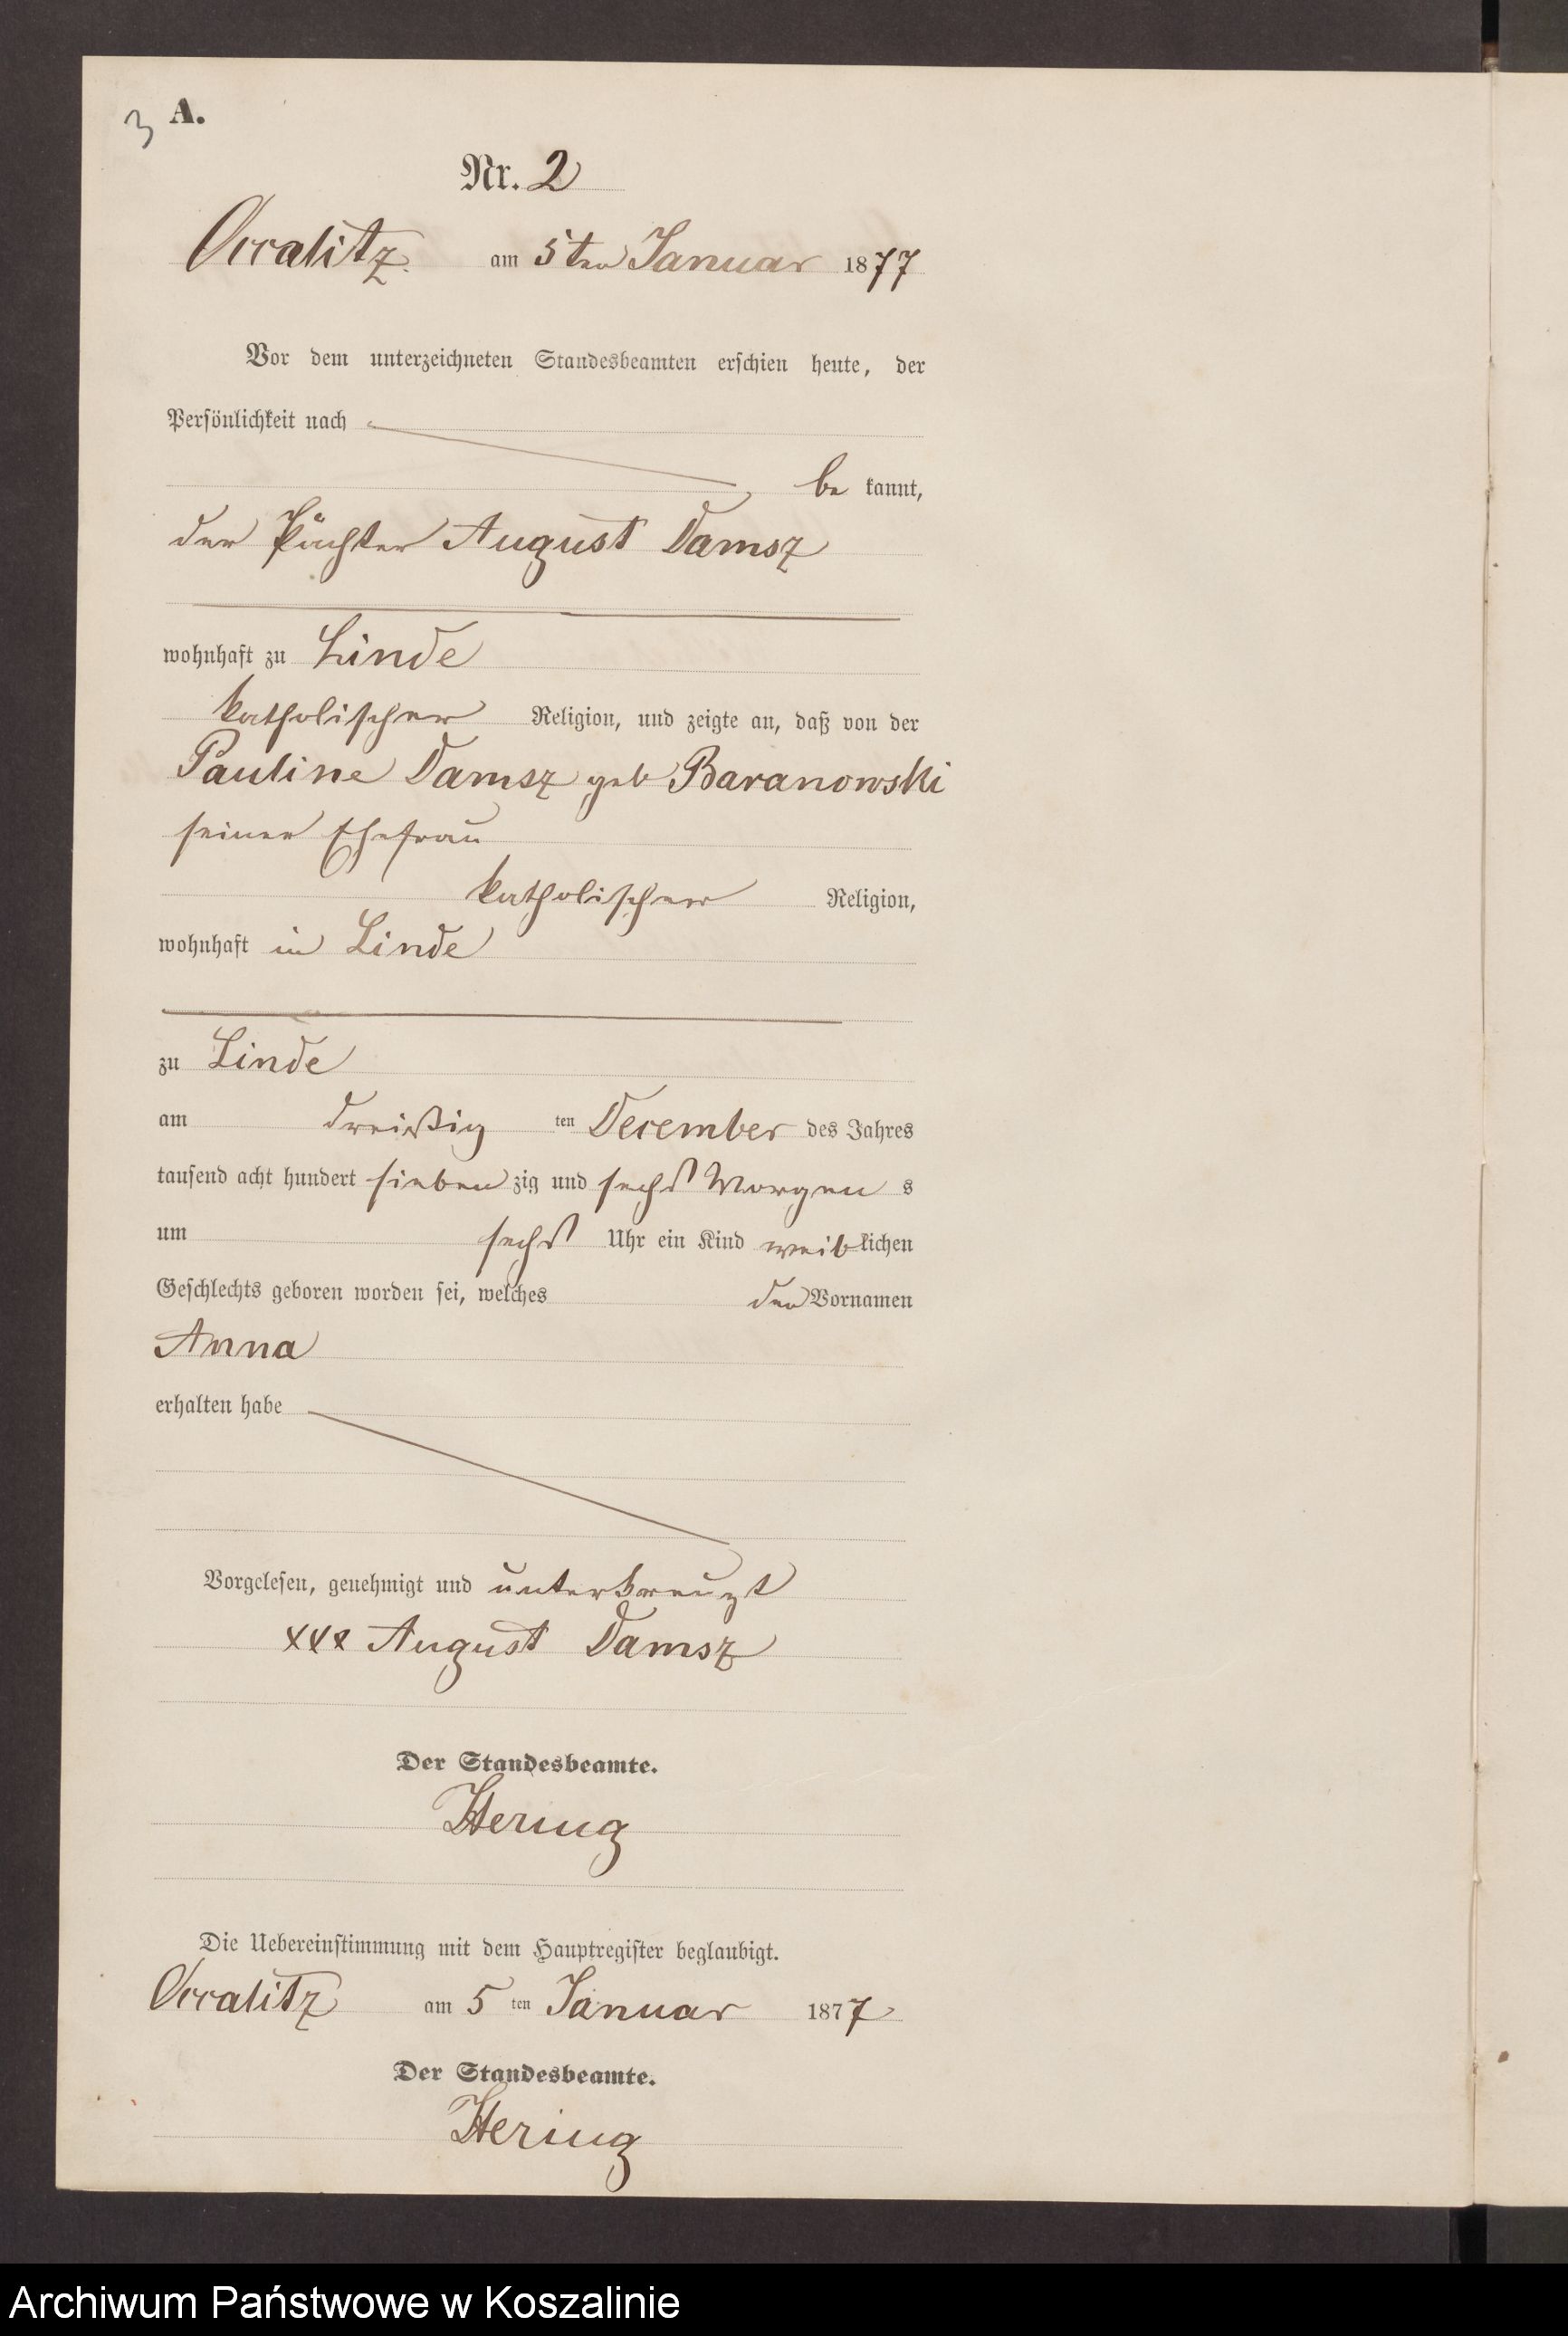 3 A.
Nr. 2
Occalitz am 5ten Januar 1877
Vor dem unterzeichneten Standesbeamten erschien heute, der
Persönlichkeit nach
be kannt,
der Pächter August Damsz
wohnhaft zu Linde
katholischer Religion, und zeigte an, daß von der
Pauline Damsz geb Baranowski
seiner Ehefrau
katholischer Religion,
wohnhaft in Linde
zu Linde
am dreißig ten December des Jahres
tausend acht hundert sieben zig und sechs Morgen s
um sechs Uhr ein Kind weib lichen
Geschlechts geboren worden sei, welches den Vornamen
Anna
erhalten habe
Vorgelesen, genehmigt und unterkreuzt
xxx August Damsz
Der Standesbeamte.
Hering
Die Uebereinstimmung mit dem Hauptregister beglaubigt.
Occalitz am 5 ten Januar 1877
Der Standesbeamte.
Hering
Archiwum Państwowe w Koszalinie